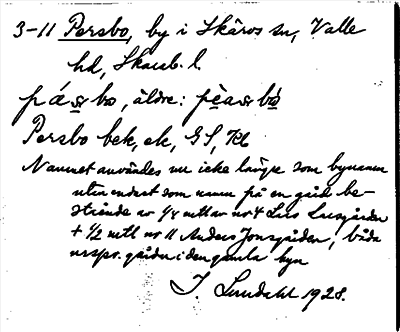 3-11 Persbo, by i Skärvs sn, Valle
hd, Skarab. l.
bo, äldre:
Persbo bek, ek, GS, Kb
Namnet användes nu icke längre som bynamn
utan endast som namn på en gård be-
stående av 1/4 mtl av nr 4 Lars Larsgården
+ 1/2 mtl nr 11 Anders Jonsgården, båda
urspr. gårdar i den gamla byn
I. Lundahl 1928.